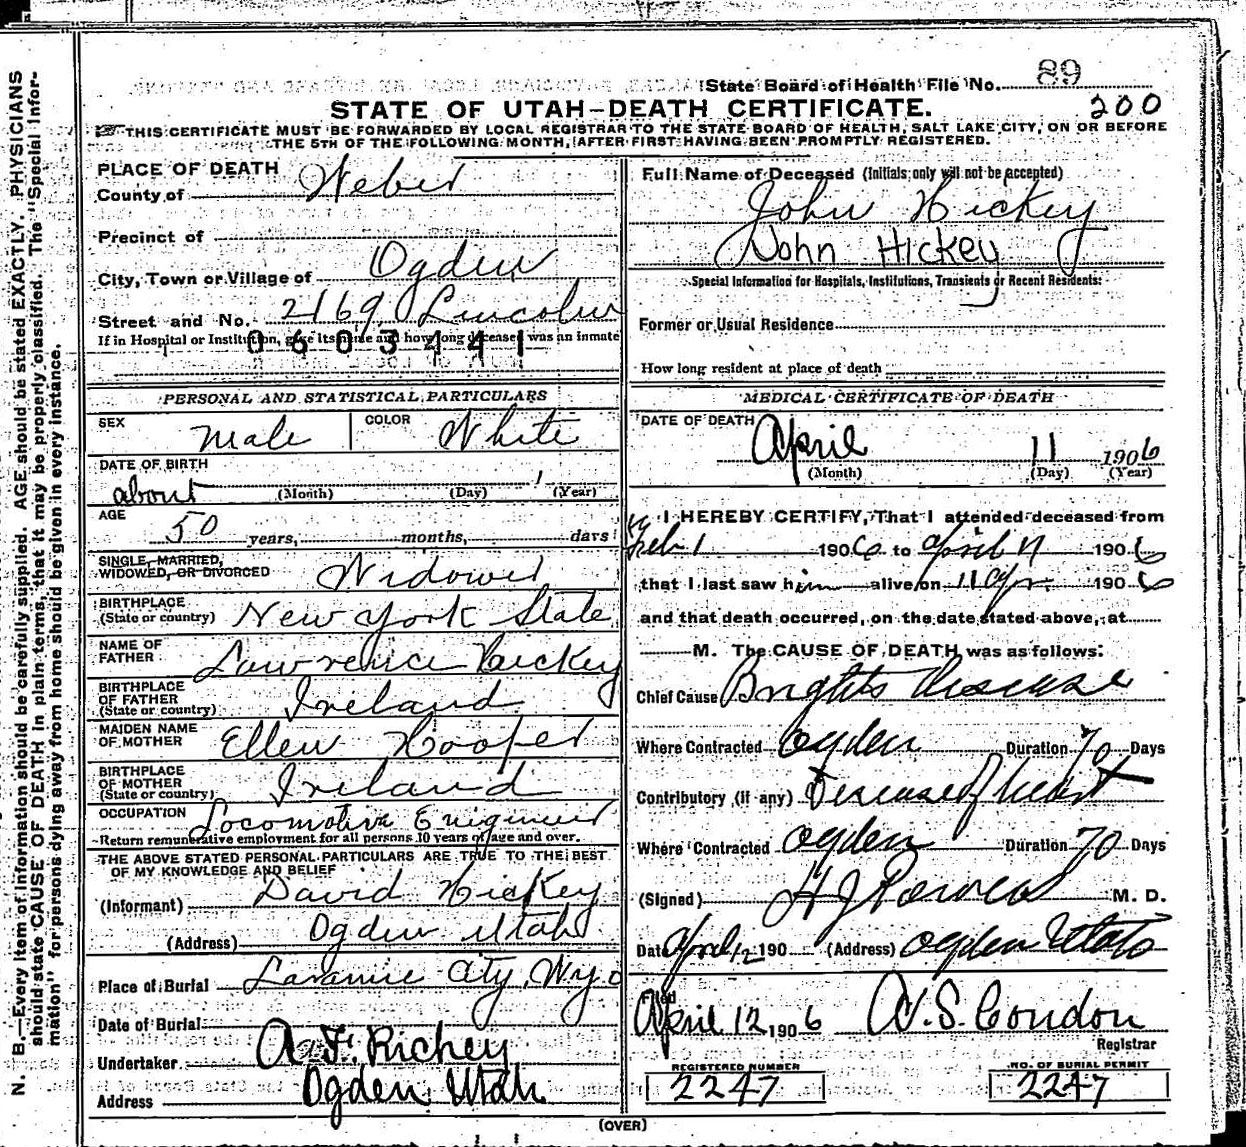 State Board of Health File No. 89
STATE OF UTAH—DEATH CERTIFICATE. 200
THIS CERTIFICATE MUST BE FORWARDED BY LOCAL REGISTRAR TO THE STATE BOARD OF HEALTH, SALT LAKE CITY, ON OR BEFORE
THE 5TH OF THE FOLLOWING MONTH, AFTER FIRST HAVING BEEN PROMPTLY REGISTERED.
N. B.—Every item of information should be carefully supplied. AGE should be stated EXACTLY. PHYSICIANS
should state CAUSE OF DEATH in plain terms, that it may be properly classified. The "Special Infor-
mation" for persons dying away from home should be given in every instance.
PLACE OF DEATH
County of Weber
Precinct of
City, Town or Village of Ogden
Street and No. 2169 Lincoln
If in Hospital or Institution, give its name and how long deceased was an inmate
0603441
PERSONAL AND STATISTICAL PARTICULARS
SEX Male COLOR White
DATE OF BIRTH
about (Month) (Day) (Year)
AGE
50 years, months, days
SINGLE, MARRIED,
WIDOWED, OR DIVORCED Widower
BIRTHPLACE
(State or country) New York State
NAME OF
FATHER Lawrence Hickey
BIRTHPLACE
OF FATHER
(State or country) Ireland
MAIDEN NAME
OF MOTHER Ellen Hooper
BIRTHPLACE
OF MOTHER
(State or country) Ireland
OCCUPATION Locomotive Engineer
Return remunerative employment for all persons 10 years of age and over.
THE ABOVE STATED PERSONAL PARTICULARS ARE TRUE TO THE BEST
OF MY KNOWLEDGE AND BELIEF
(Informant) David Hickey
(Address) Ogden Utah
Place of Burial Laramie City, Wyo
Date of Burial
Undertaker A. F. Richey
Address Ogden Utah
Full Name of Deceased (Initials only will not be accepted)
John Hickey
John Hickey
Special Information for Hospitals, Institutions, Transients or Recent Residents:
Former or Usual Residence
How long resident at place of death
MEDICAL CERTIFICATE OF DEATH
DATE OF DEATH
April 11 1906
(Month) (Day) (Year)
I HEREBY CERTIFY, That I attended deceased from
Feb 1 1906 to April 11 1906
that I last saw him alive on 11 Apr 1906
and that death occurred, on the date stated above, at
M. The CAUSE OF DEATH was as follows:
Chief Cause Brights Disease
Where Contracted Ogden Duration 70 Days
Contributory (if any) Disease of heart
Where Contracted Ogden Duration 70 Days
(Signed) H J Powers M. D.
Date April 12 190 (Address) Ogden Utah
Filed
April 12 1906 A. S. Condon
Registrar
REGISTERED NUMBER
2247
NO. OF BURIAL PERMIT
2247
(OVER)